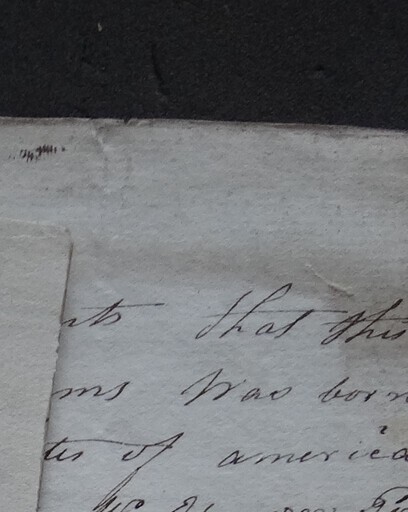 nts that this
ms Was born
tes of america